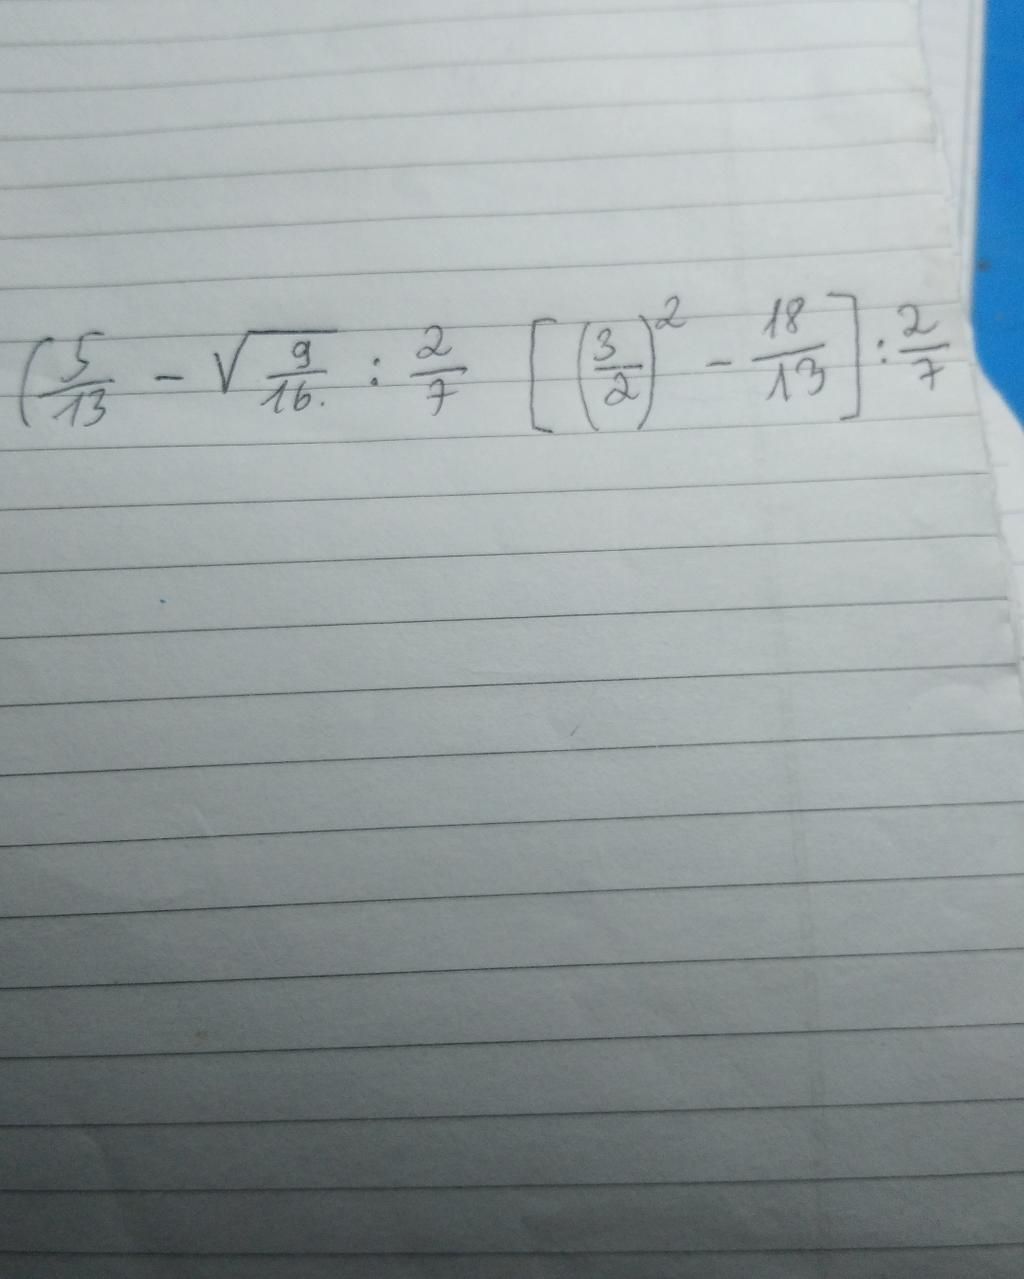 (5/13 - √9/16. : 2/7 [(3/2)² - 18/13] : 2/7